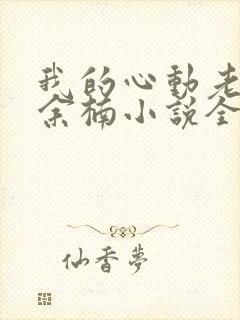 我的心動老
余楠小說全
仙香夢